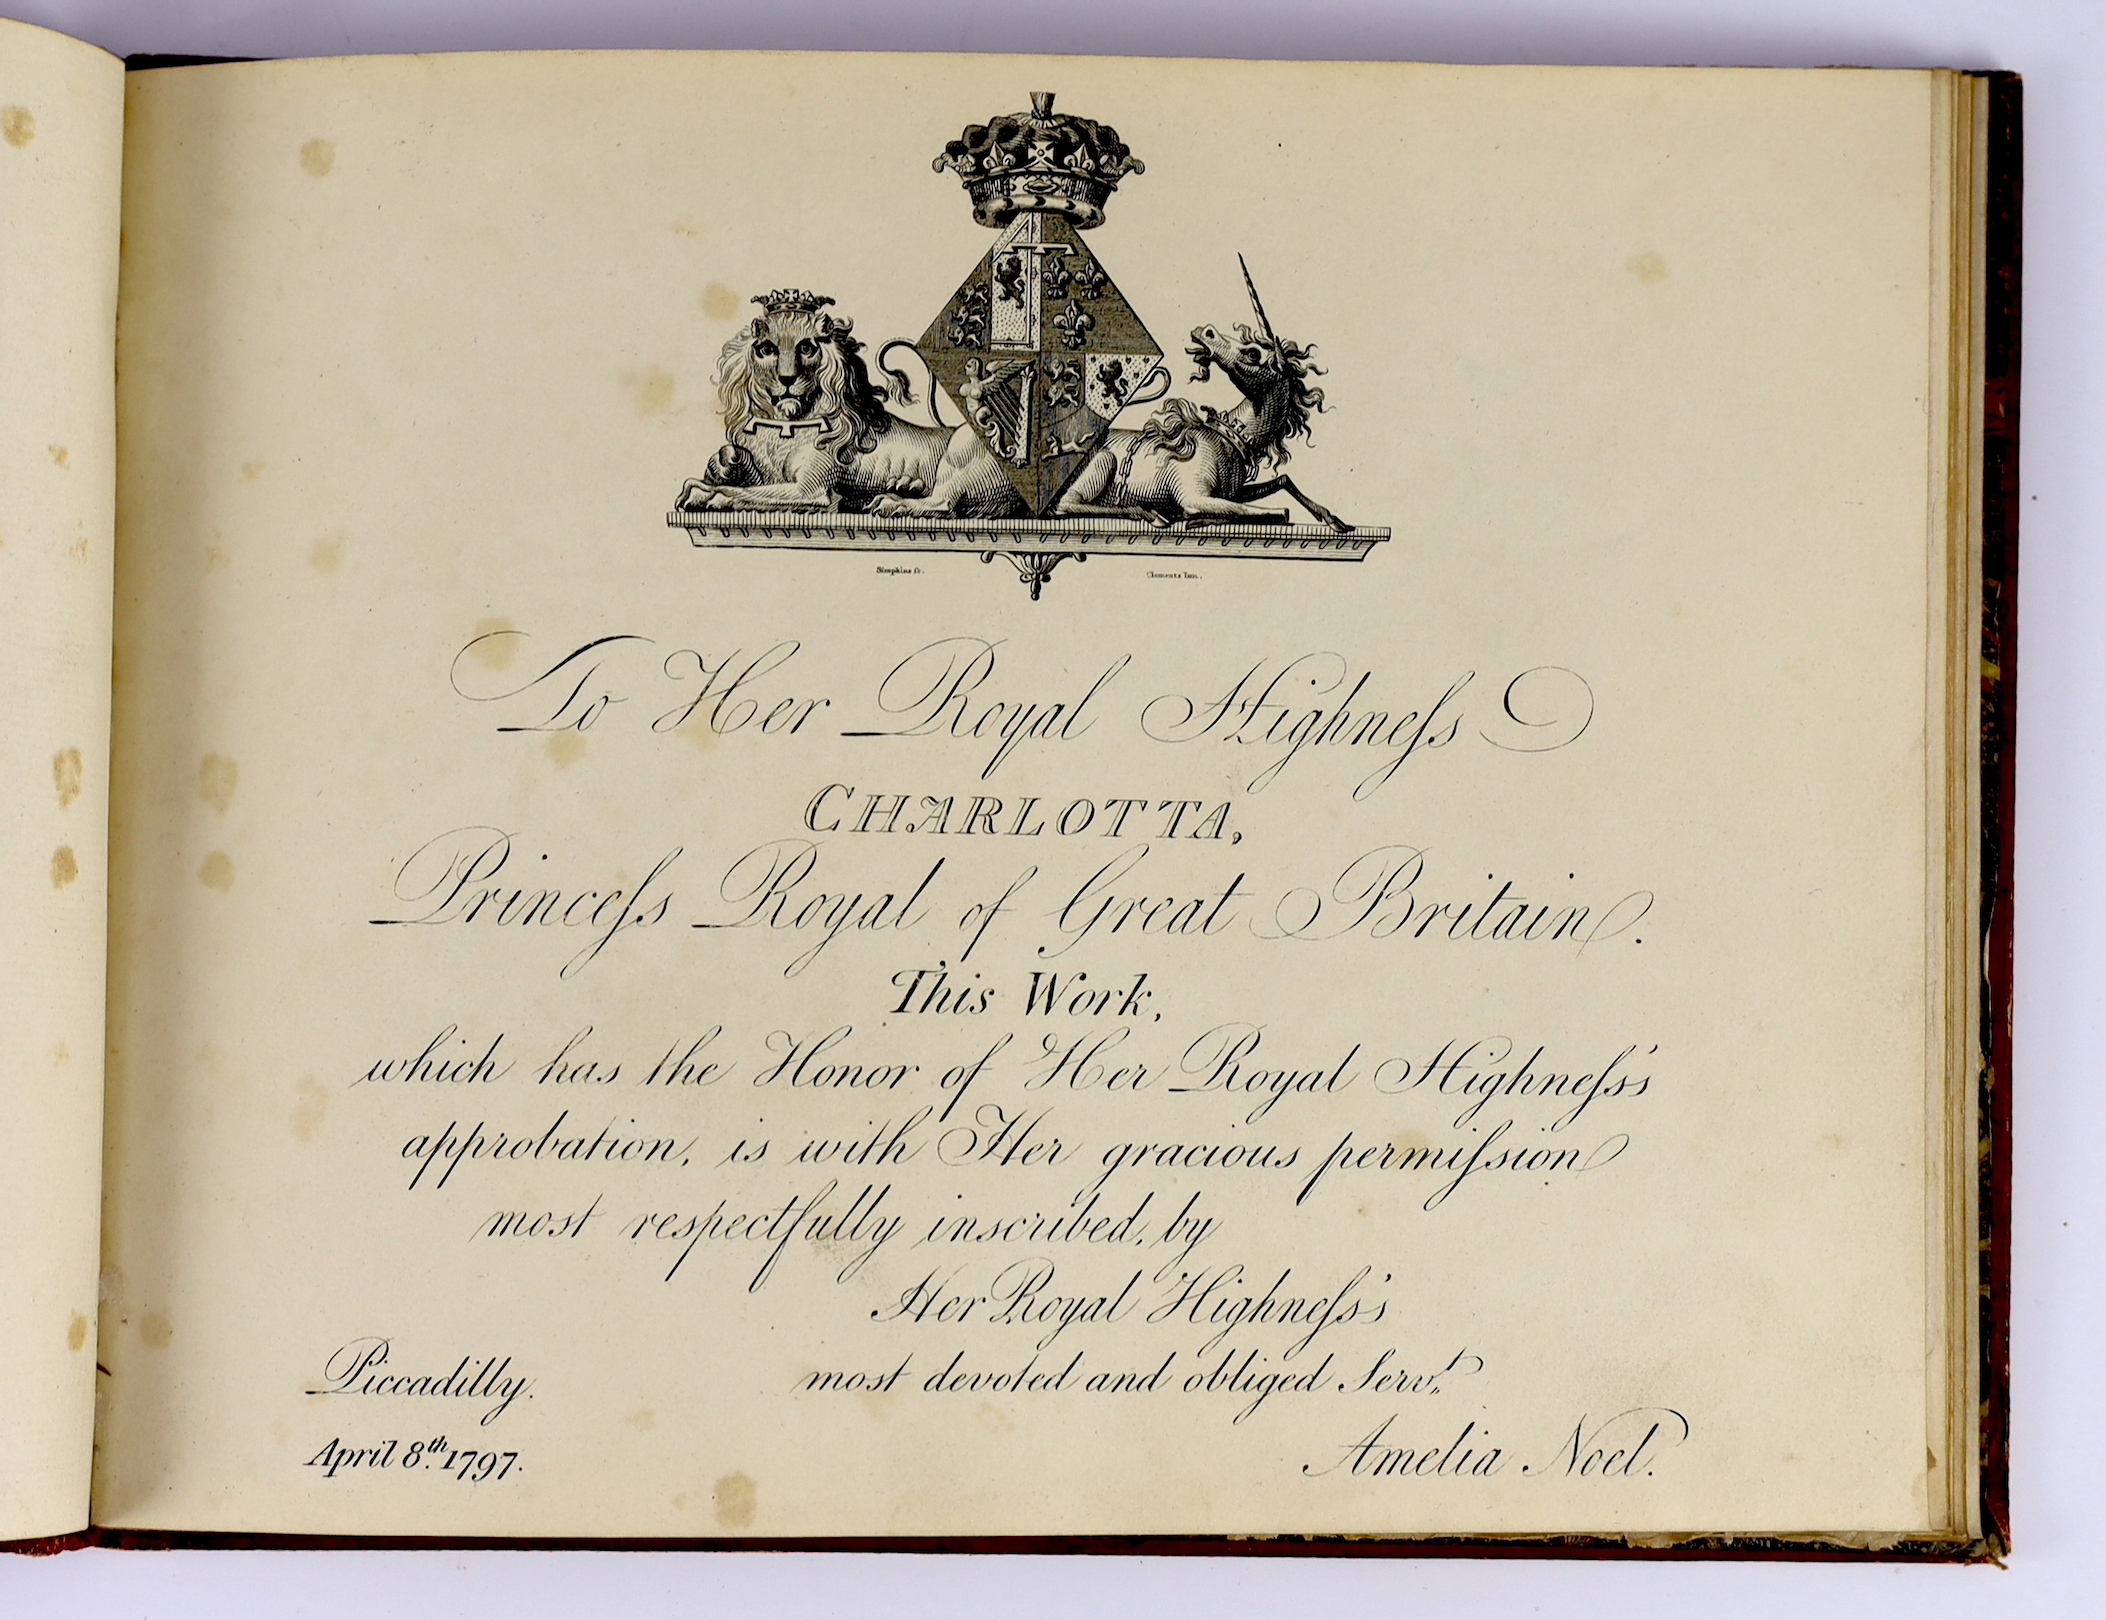 Simpkins sc. Clements Imp.
To Her Royal Highneſs
CHARLOTTA,
Princeſs Royal of Great Britain.
This Work,
which has the Honor of Her Royal Highneſs's
approbation, is with Her gracious permiſsion
most respectfully inscribed, by
Her Royal Highneſs's
most devoted and obliged Servt.
Amelia Noel.
Piccadilly.
April 8th. 1797.